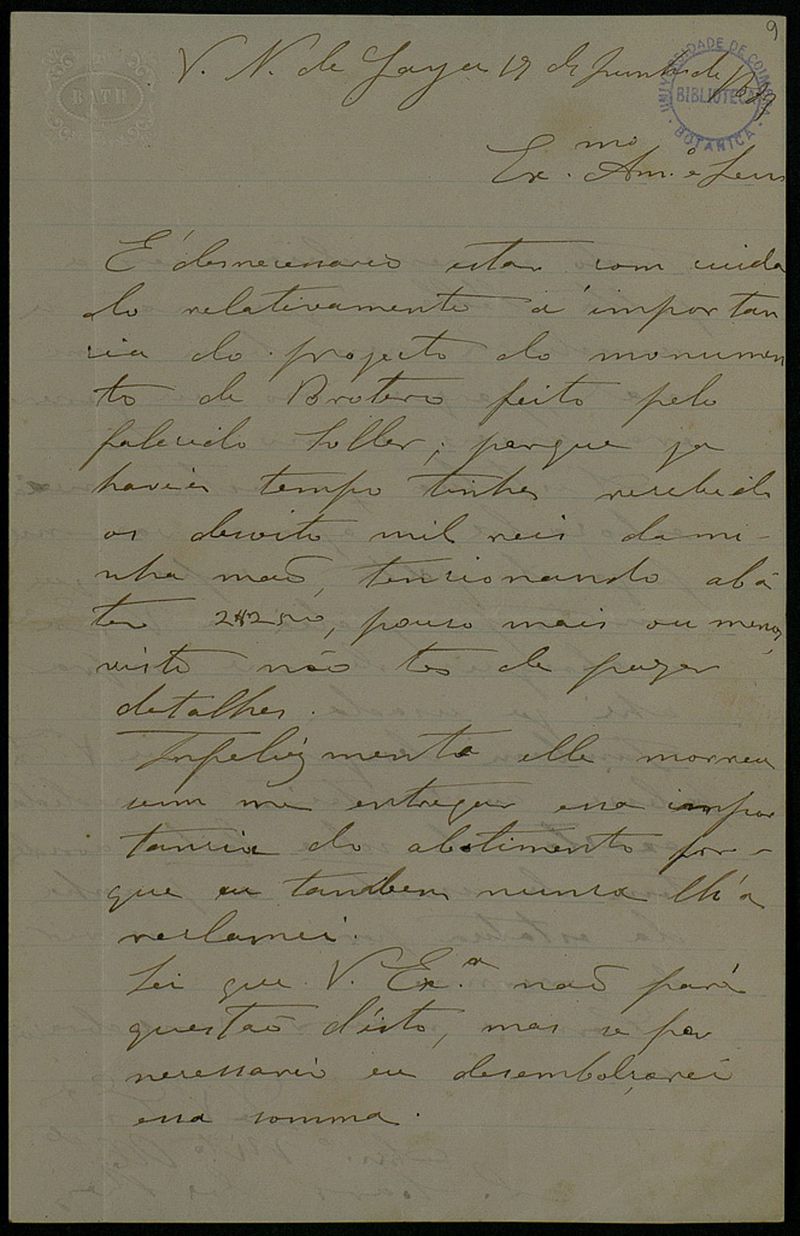 9
UNIVERSIDADE DE COIMBRA
BIBLIOTECA
BOTANICA
BATH
V. N. de Gaya 19 de Junho de
Ex.mo Am.o e Senr
É desnecessario estar com cuida
do relativamente á importan
cia do projecto do monumen
to de Brotero feito pelo
falecido Soller; porque ja
havia tempo tinha recebido
os desoito mil reis da mi-
nha maõ, tencionando aba
ter 2#250, pouco mais ou menos,
visto não ter de fazer
detalhes.
Infelizmente elle morreu
sem me entregar essa impor
tancia do abatimento por-
que eu tambem nunca lh'a
reclamei.
Sei que V. Ex.a naõ fará
questaõ d'isto, mas se for
necessario eu desembolçarei
essa somma.